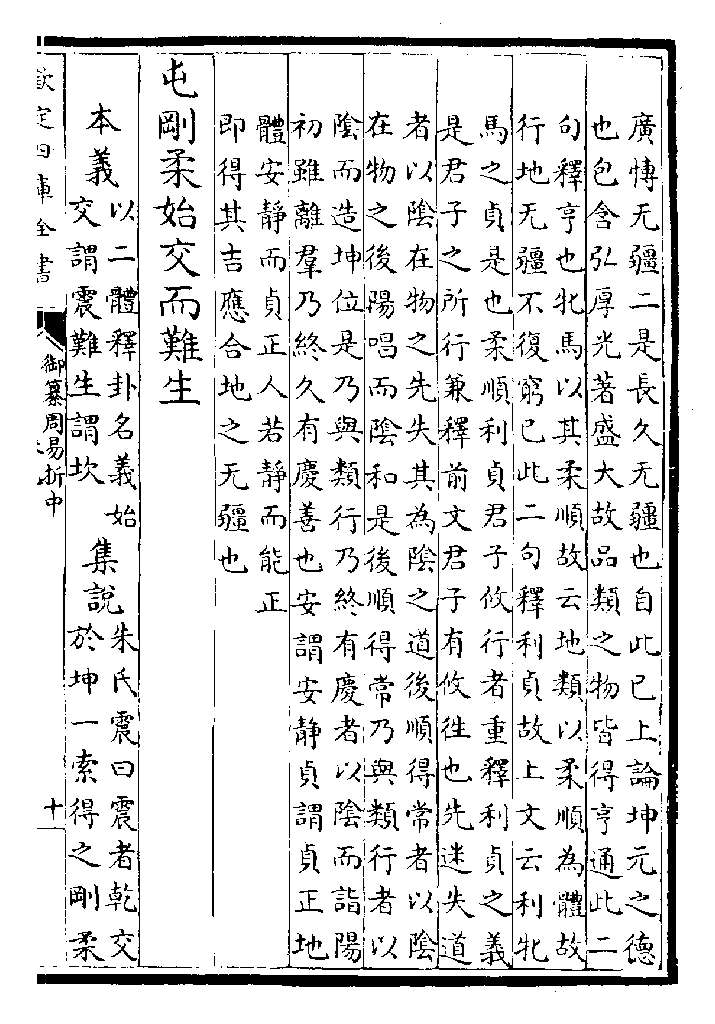 廣慱无疆二是長久无疆也自此已上論坤元之德
也包含弘厚光著盛大故品類之物皆得亨通此二
句釋亨也牝馬以其柔順故云地類以柔順為體故
行地无疆不復窮已此二句釋利貞故上文云利牝
馬之貞是也柔順利貞君子攸行者重釋利貞之義
是君子之所行兼釋前文君子有攸徃也先迷失道
者以陰在物之先失其為陰之道後順得常者以陰
在物之後陽唱而陰和是後順得常乃與類行者以
陰而造坤位是乃與類行乃終有慶者以陰而詣陽
初雖離羣乃終久有慶善也安謂安靜貞謂貞正地
體安靜而貞正人若靜而能正
即得其吉應合地之无疆也
屯剛柔始交而難生
本義
以二體釋卦名義始
交謂震難生謂坎
集說
朱氏震曰震者乾交
於坤一索得之剛柔
欽定四庫全書
御纂周易折中
十